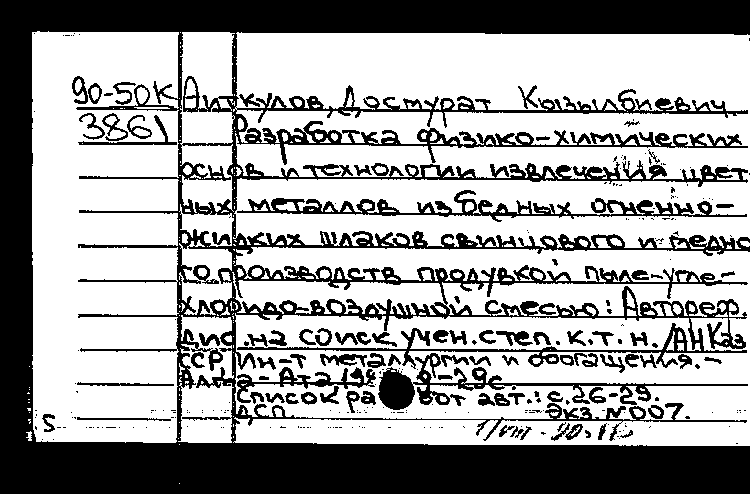 90-50К Аиткулов, Досмурат Кызылбиевич.
3861 Разработка физико-химических
основ и технологии извлечения цвет-
ных металлов из бедных огненно-
жидких шлаков свинцового и медно
го производств продувкой пыле-угле-
хлоридо-воздушной смесью: Автореф.
дис. на соиск. учен. степ. к.т.н. /АН Каз
ССР, Ин-т металлургии и обогащения. -
Алма-Ата, 29с
Список работ авт.: с.26-29.
ДСП Экз. №007.
S